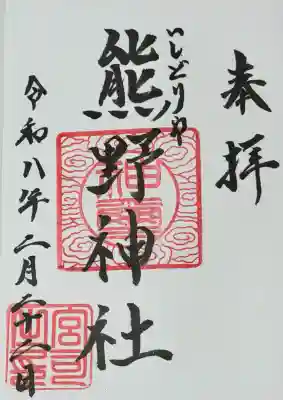 奉拝
いしどりや
熊野神社
令和八年二月二十二日
宮司之印